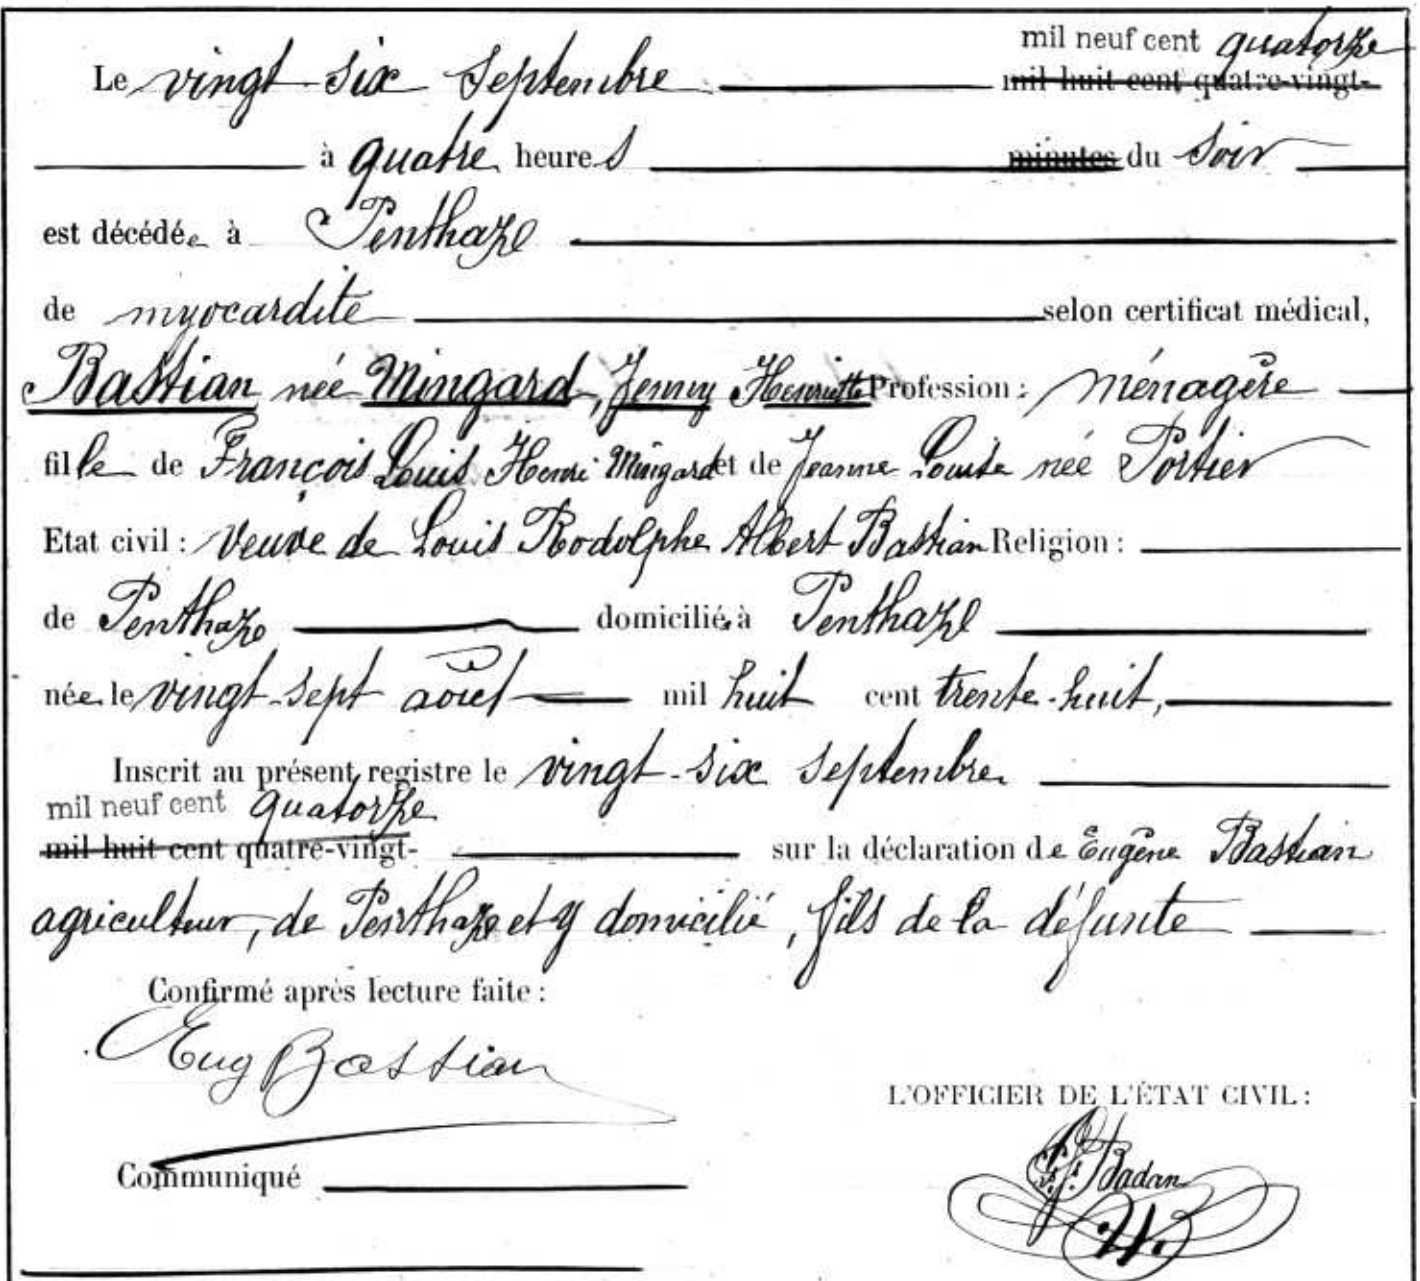 mil neuf cent quatorze
Le vingt-six Septembre mil huit cent quatre-vingt-
à quatre heures minutes du soir
est décédée à Penthaze
de myocardite selon certificat médical,
Bastian née Mingard, Jenny Henriette Profession : ménagère
fille de François Louis Henri Mingard et de Jeanne Louise née Portier
Etat civil : Veuve de Louis Rodolphe Albert Bastian Religion :
de Penthaze domiciliée à Penthaze
née le vingt-sept août mil huit cent trente-huit,
Inscrit au présent registre le vingt-six Septembre
mil neuf cent quatorze
mil huit cent quatre-vingt- sur la déclaration de Eugène Bastian
agriculteur, de Penthaze et y domicilié, fils de la défunte
Confirmé après lecture faite :
Eug Bastian
L'OFFICIER DE L'ÉTAT CIVIL :
Badan
Communiqué